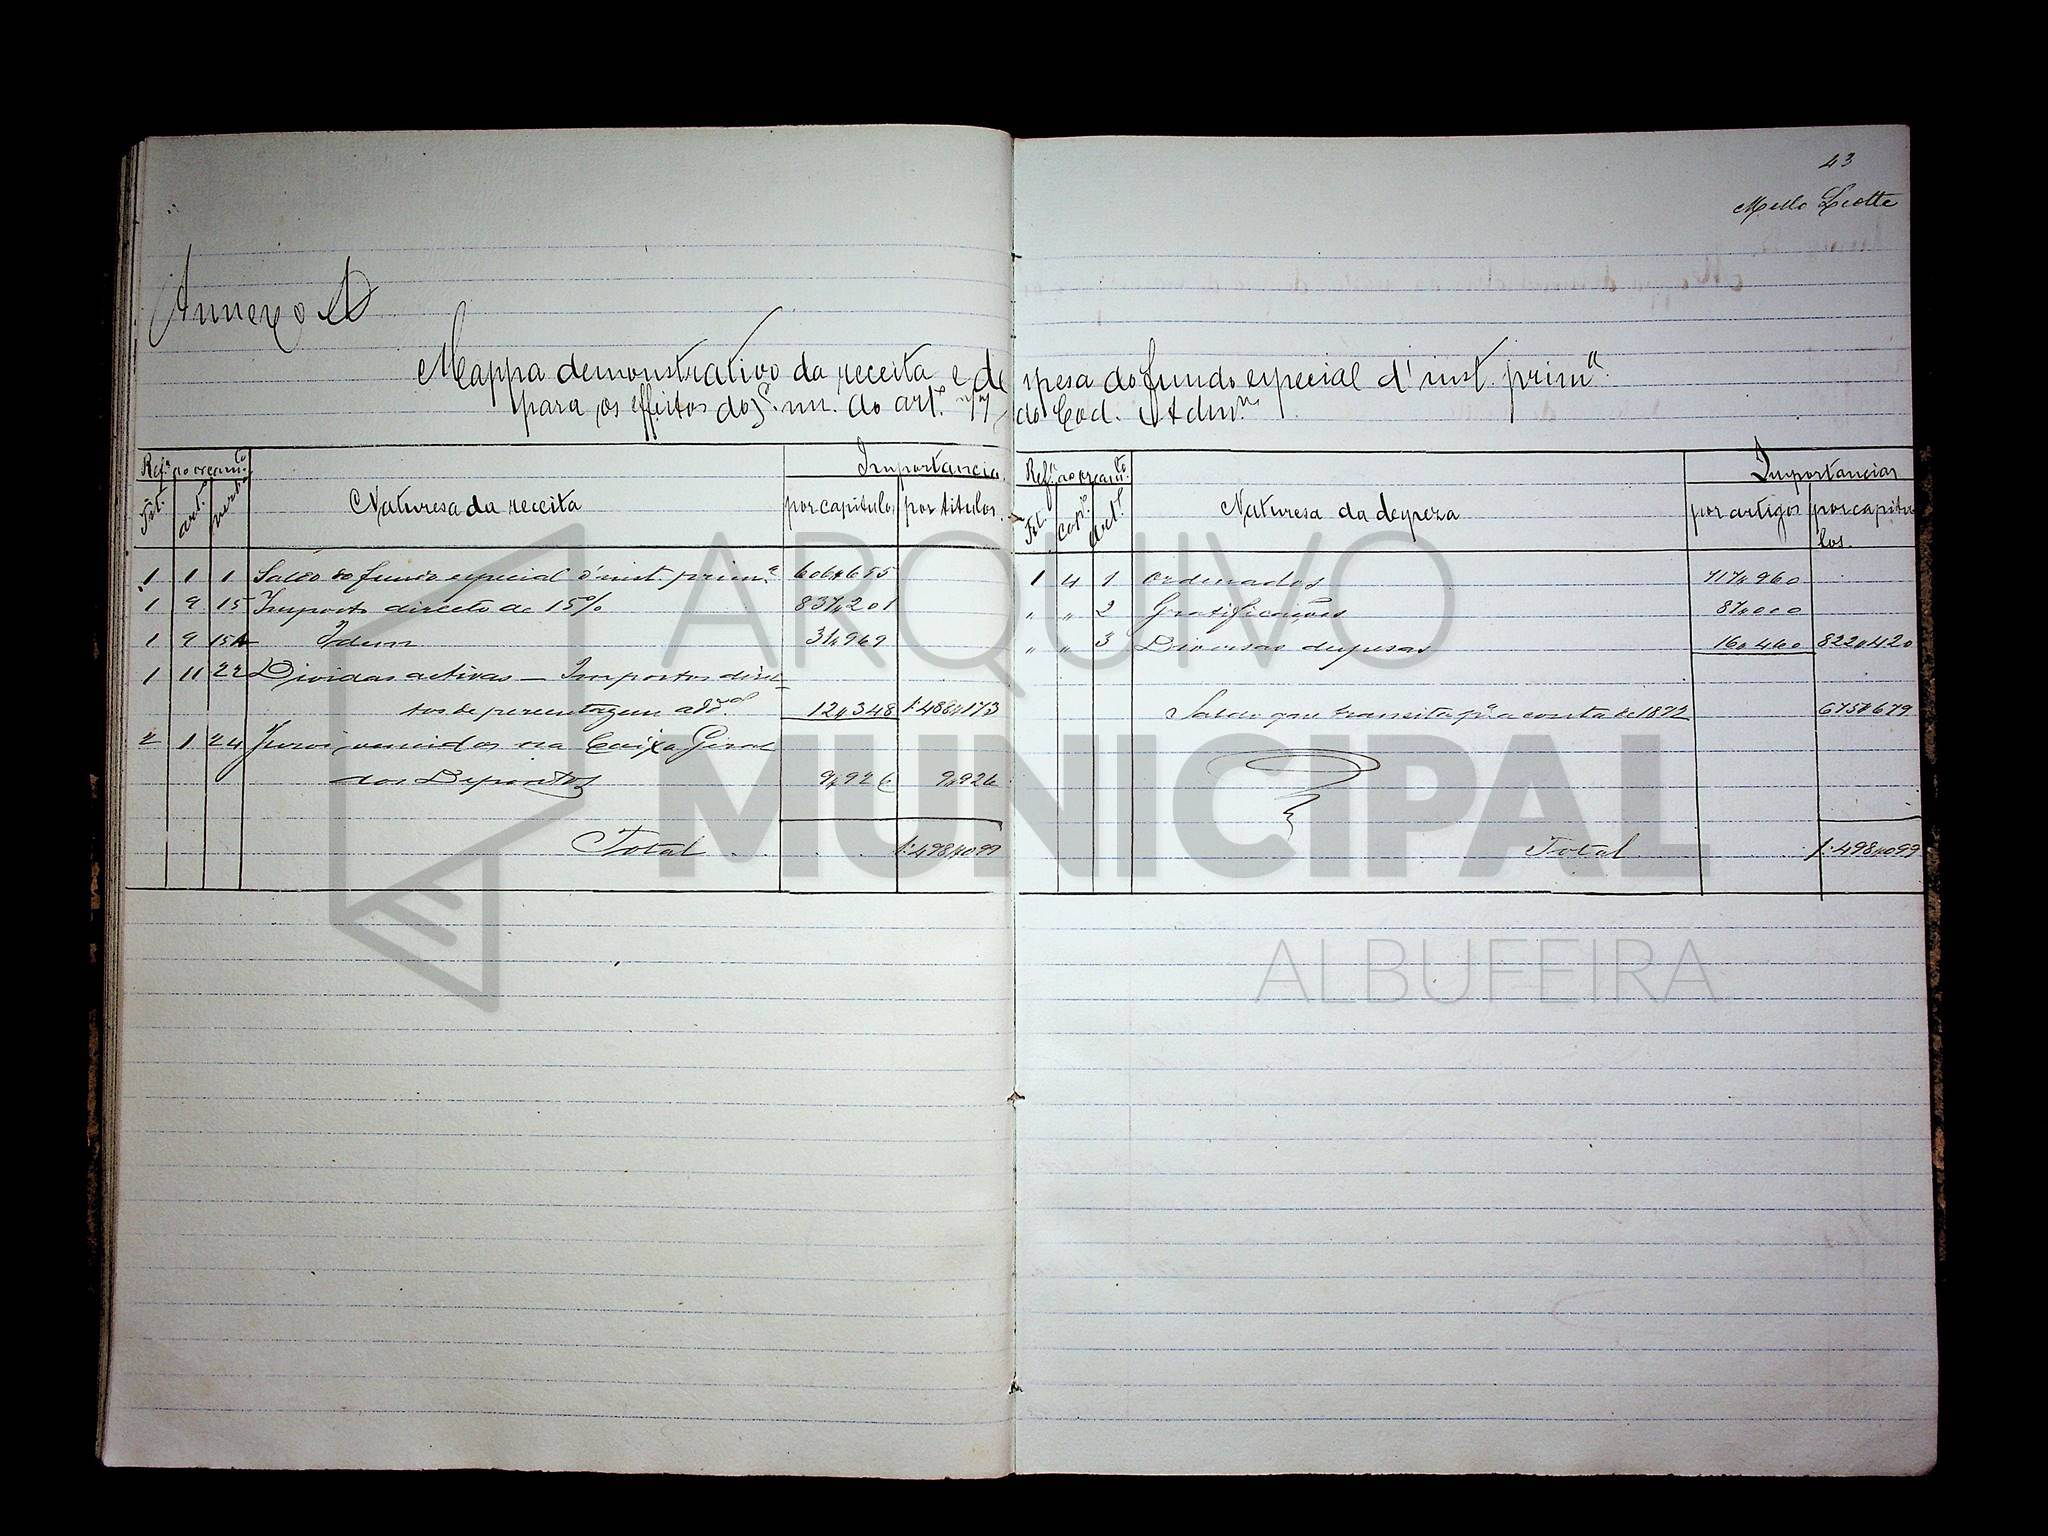 43
Mello Leotte
Annexo D
Mappa demonstrativo da receita e despesa do fundo especial d'inst. prim.ª
para os effeitos do § un. do art.º do Cod. Adm.
Ref.ª ao orçam.to
Tit.º art.º verba
Naturesa da receita
Importancia
por capitulos por titulos
1 1 1 Saldo do fundo especial d'inst. prim.ª 606$655
1 9 15 Imposto directo de 15% 837$201
1 9 15A Idem 31$969
1 11 22 Dividas activas — Impostos direc-
tos de percentagem add.al 12$348 1:488$173
2 1 24 Juros vencidos na Caixa Geral
dos Depositos 9$926 9$926
Total 1:498$099
Ref.ª ao orçam.to
Tit. cap.º art.º
Naturesa da despeza
Importancias
por artigos por capitu
los.
1 4 1 Ordenados 717$960
" " 2 Gratificações 87$000
" " 3 Diversas despesas 16$460 822$420
Saldo que transita p.ª a conta de 1892 675$679
Total 1:498$099
ARQUIVO
MUNICIPAL
ALBUFEIRA